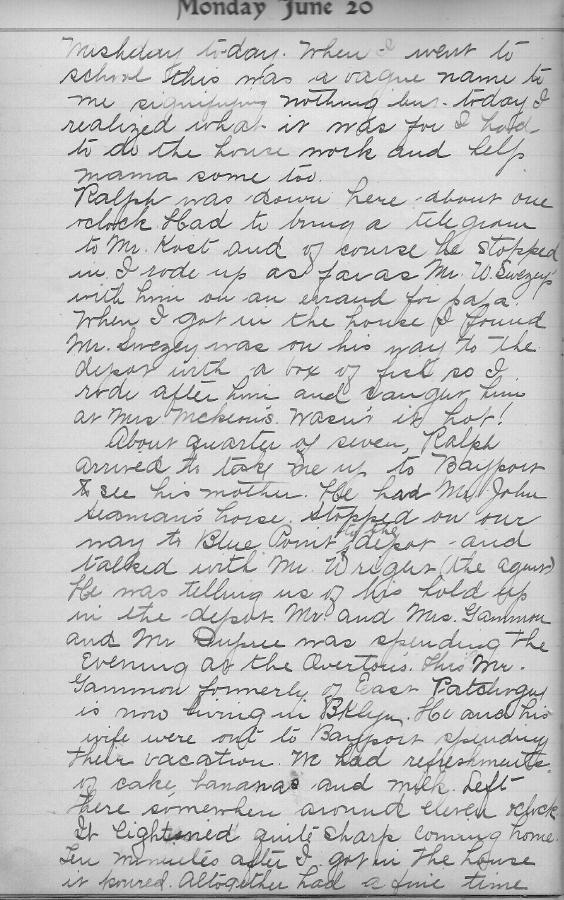 Monday June 20
Washday to-day. When I went to
school this was a vague name to
me signifying nothing but to-day I
realized what it was for I had
to do the house work and help
mama some too.
Ralph was down here about one
oclock Had to bring a telegram
to Mr. Kost and of course he stopped
in. I rode up as far as Mr. W. Swezey's
with him on an errand for papa.
When I got in the house I found
Mr. Swezey was on his way to the
depot with a box of fish so I
rode after him and caught him
at Mrs. McKeon's. Wasn't it hot!
About quarter of seven, Ralph
arrived to take me up to Bayport
to see his mother. He had Mr. John
Seaman's horse. Stopped on our
way to Blue Point to the depot and
talked with Mr. (the agent)
He was telling us of his hold up
in the depot. Mr. and Mrs. Gammon
and Mr Dupree was spending the
Evening at the Overtons. This Mr.
Gammon formerly of East Patchogue
is now living in Bklyn. He and his
wife were out to Bayport spending
their vacation. We had refreshments
of cake, bananas and milk. Left
there somewhere around eleven oclock
It lightened quite sharp coming home.
Ten minutes after I got in the house
it poured. Altogether had a fine time